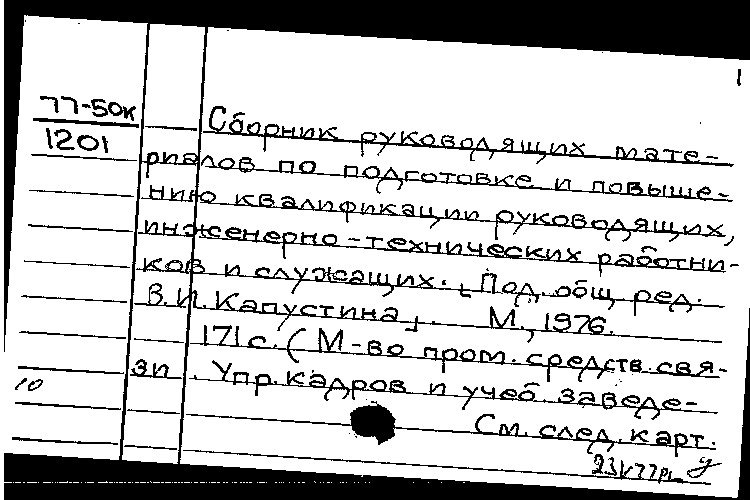 1
77-50к
1201
Сборник руководящих мате-
риалов по подготовке и повыше-
нию квалификации руководящих,
инженерно-технических работни-
ков и служащих. [Под общ. ред.
В.И. Капустина]. М., 1976.
171 с. (М-во пром. средств свя-
зи. Упр. кадров и учеб. заведе-
10
См. след. карт.